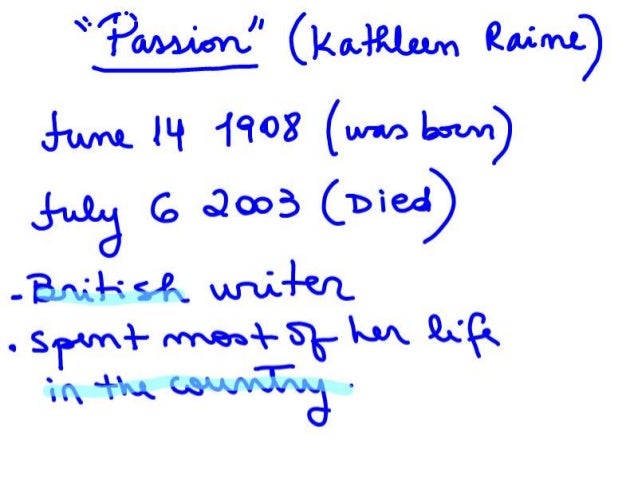 "Passion" (Kathleen Raine)
June 14 1908 (was born)
July 6 2003 (Died)
- British writer
. spent most of her life
in the country.